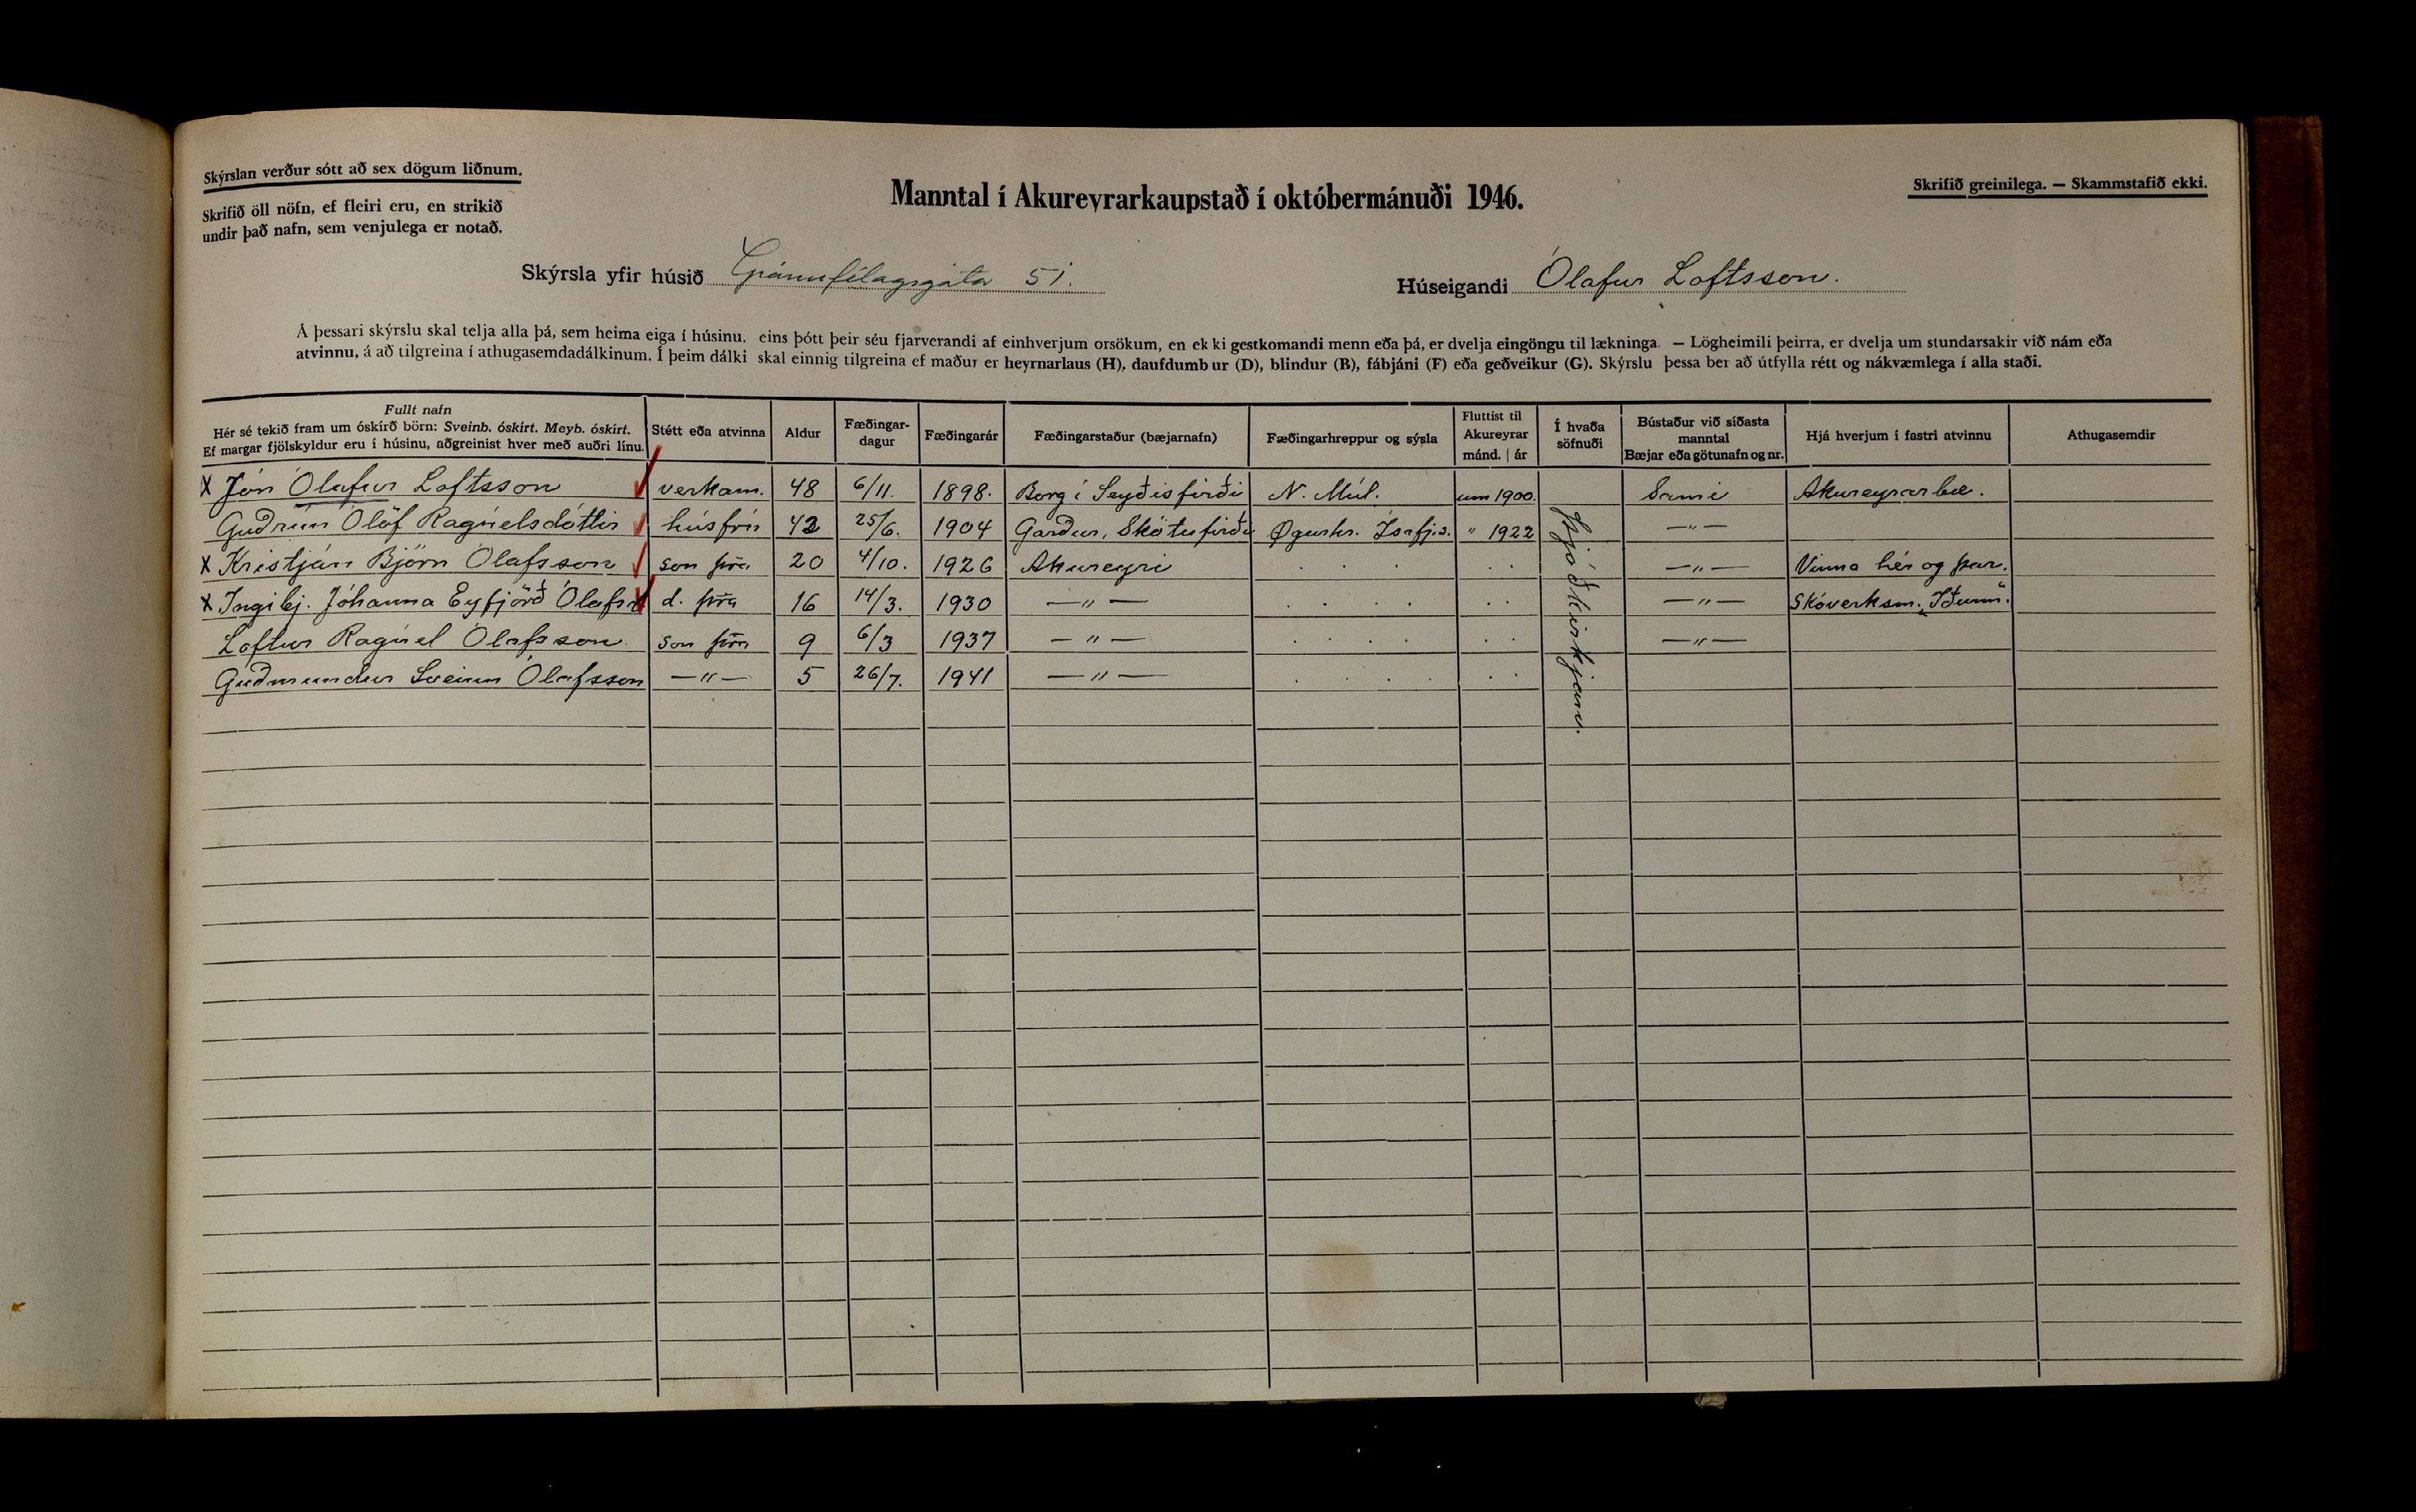 Skýrslan verður sótt að sex dögum liðnum.
Skrifið öll nöfn, ef fleiri eru, en strikið
undir það nafn, sem venjulega er notað.
Manntal í Akureyrarkaupstað í októbermánuði 1946.
Skrifið greinilega. — Skammstafið ekki.
Skýrsla yfir húsið Gránufélagsgata 51.
Húseigandi Ólafur Loftsson.
Á þessari skýrslu skal telja alla þá, sem heima eiga í húsinu, eins þótt þeir séu fjarverandi af einhverjum orsökum, en ek ki gestkomandi menn eða þá, er dvelja eingöngu til lækninga. — Lögheimili þeirra, er dvelja um stundarsakir við nám eða
atvinnu, á að tilgreina í athugasemdadálkinum. Í þeim dálki skal einnig tilgreina ef maður er heyrnarlaus (H), daufdumb ur (D), blindur (B), fábjáni (F) eða geðveikur (G). Skýrslu þessa ber að útfylla rétt og nákvæmlega í alla staði.
Fullt nafn
Hér sé tekið fram um óskírð börn: Sveinb. óskírt. Meyb. óskírt.
Ef margar fjölskyldur eru í húsinu, aðgreinist hver með auðri línu.
Stétt eða atvinna
Aldur
Fæðingar-
dagur
Fæðingarár
Fæðingarstaður (bæjarnafn)
Fæðingarhreppur og sýsla
Fluttist til
Akureyrar
mánd. | ár
Í hvaða
söfnuði
Bústaður við síðasta
manntal
Bæjar eða götunafn og nr.
Hjá hverjum í fastri atvinnu
Athugasemdir
x Jón Ólafur Loftsson verkam. 48 6/11. 1898. Borg í Seyðisfirði N. Múl. um 1900. Sami Akureyrarbæ.
Guðrún Ólöf Ragúelsdóttir húsfrú 42 25/6. 1904 Garður, Skötufirði Øgurhr. Ísafj.s. " 1922 —"—
x Kristján Björn Ólafsson son þra 20 4/10. 1926 Akureyri . . . . . . —"— Vinna hér og þar.
x Ingibj. Jóhanna Eyfjörð Ólafsd. d. þra 16 14/3. 1930 —"— . . . . . . —"— Skóverksm. "Iðunn"
Loftur Ragúel Ólafsson. son þra 9 6/3 1937 —"— . . . . . . —"—
Guðmundur Sveinn Ólafsson —"— 5 26/7. 1941 —"— . . . . . .
Þjóðkirkjunn.